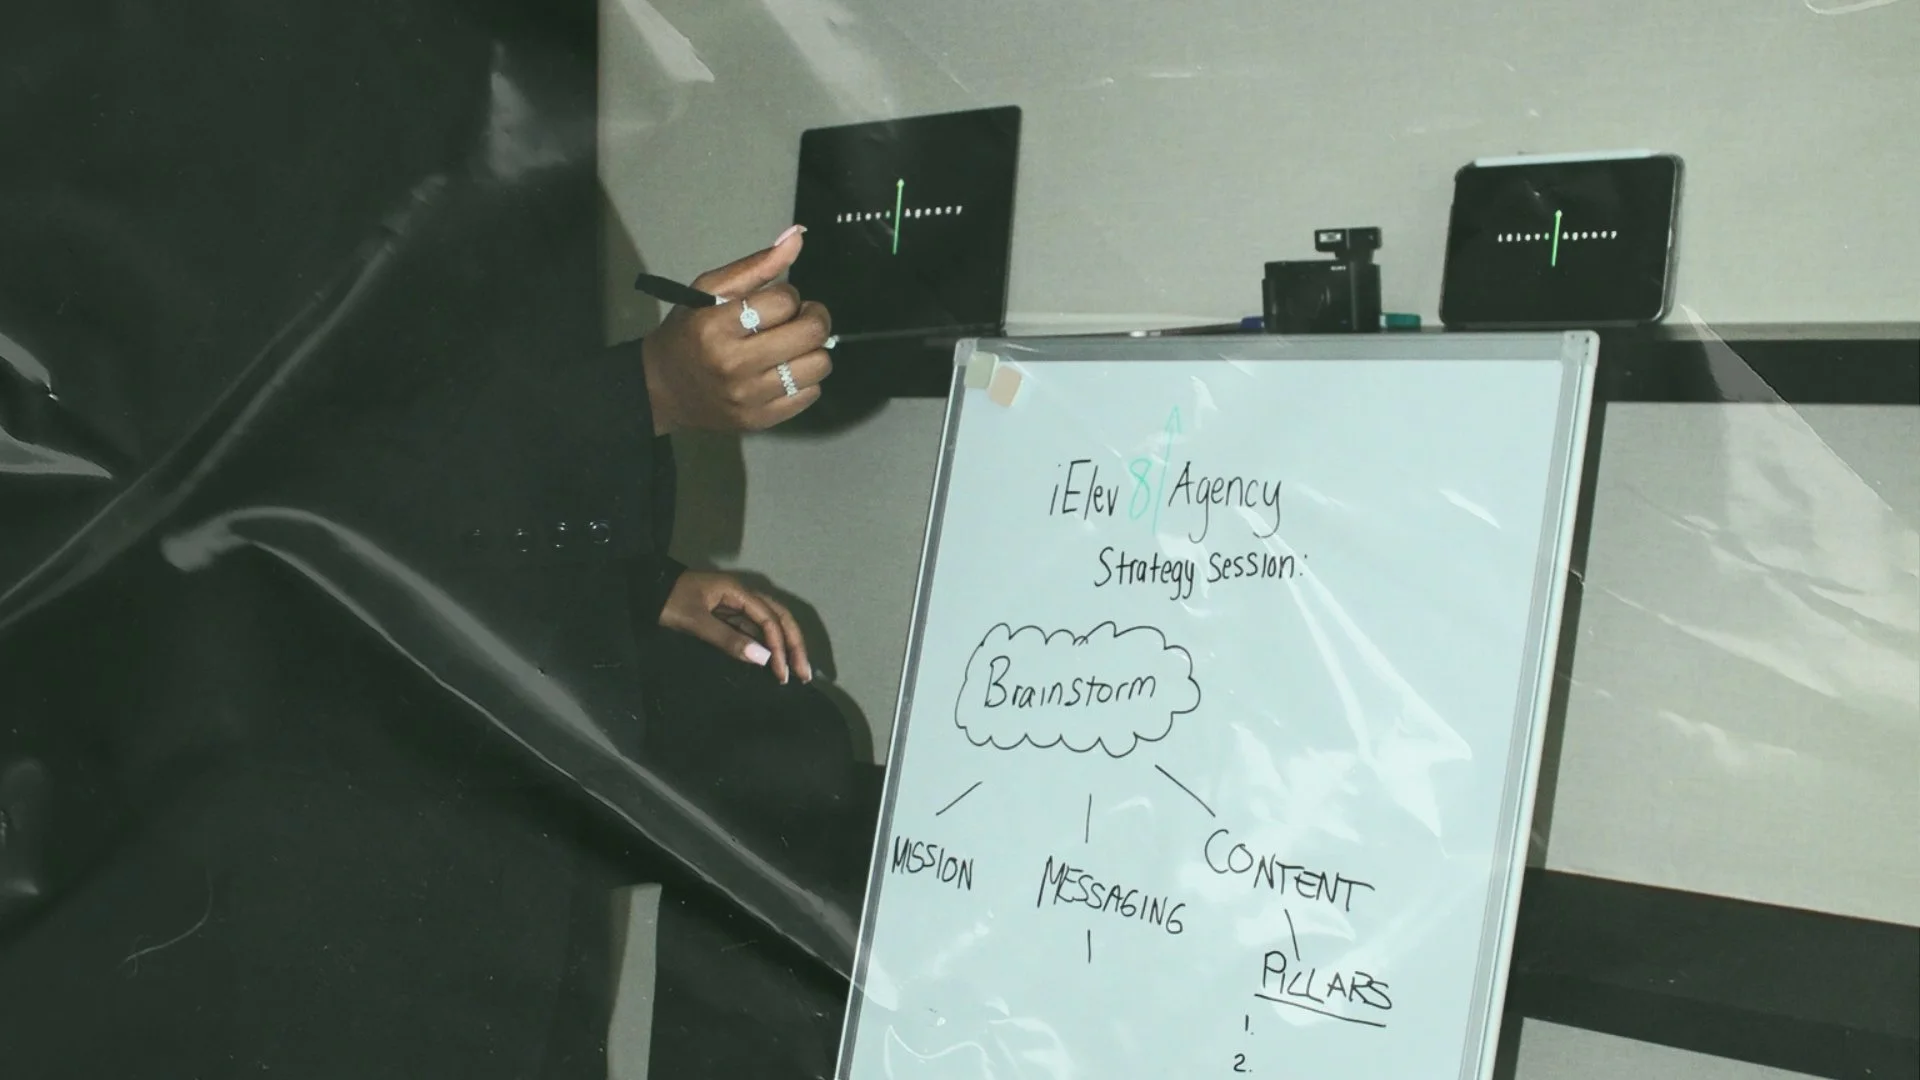 iElev8 Agency
iElev8 Agency
iElev8 Agency
Strategy Session:
Brainstorm
MISSION
MESSAGING
CONTENT
PILLARS
1.
2.